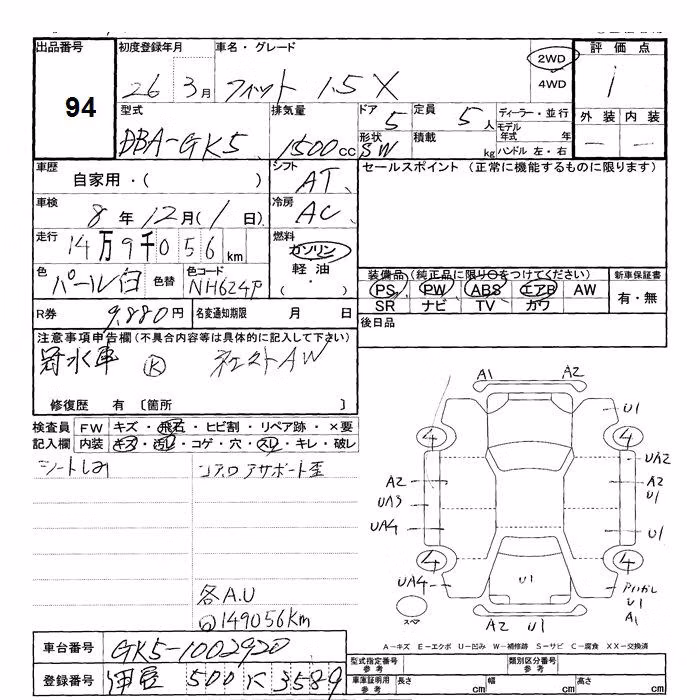 出品番号 初度登録年月 車名・グレード 2WD 4WD 評価点
94 26 3月 フィット 1.5X 1
型式 排気量 ドア 5 定員 5人 ディーラー・並行 外装 内装
DBA-GK5 1500cc 形状 SW 積載 kg モデル年式 年 ハンドル 左・右 — —
車歴 シフト セールスポイント (正常に機能するものに限ります)
自家用・( ) AT
車検 冷房
8年12月(1日) AC
走行 燃料
14万9千056km ガソリン
色 色替 色コード 軽油
パール白 NH624P (・)
装備品(純正品に限り○をつけてください) 新車保証書
PS PW ABS エアB AW 有・無
SR ナビ TV カワ
R券 9,880円 名変通知期限 月 日
後日品
注意事項申告欄(不具合内容等は具体的に記入して下さい)
冠水車 Ⓚ AW
修復歴 有 〔箇所 〕
検査員 FW キズ・飛石・ヒビ割・リペア跡・×要
記入欄 内装 キズ・汚レ・コゲ・穴・スレ・キレ・破レ
シートしみ コアロアサポート歪
A1 A2
U1
4 4
UA2
A2 A2
U1
UA3
UA4 U1
4 4
UA4 U1
U1
A1
スペ A2 U1
各A.U
149056Km
A―キズ E―エクボ U―凹み W―補修跡 S―サビ C―腐食 XX―交換済
車台番号 GK5-1002920 型式指定番号 参考 類別区分番号 参考
登録番号 500 K 3589 車庫証明用 参考 長さ cm 幅 cm 高さ cm